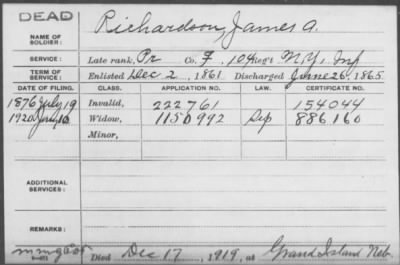 DEAD
NAME OF SOLDIER: Richardson, James A.
SERVICE: Late rank, Pr Co. F, 104 Reg't N.Y. Inf
TERM OF SERVICE: Enlisted Dec 2, 1861. Discharged June 26, 1865
DATE OF FILING. CLASS. APPLICATION NO. LAW. CERTIFICATE NO.
1876 July 19 Invalid, 222761 154044
1920 Widow, 1150992 886160
Minor,
ADDITIONAL SERVICES:
REMARKS:
Died Dec 17, 1919, at Grand Island Neb.